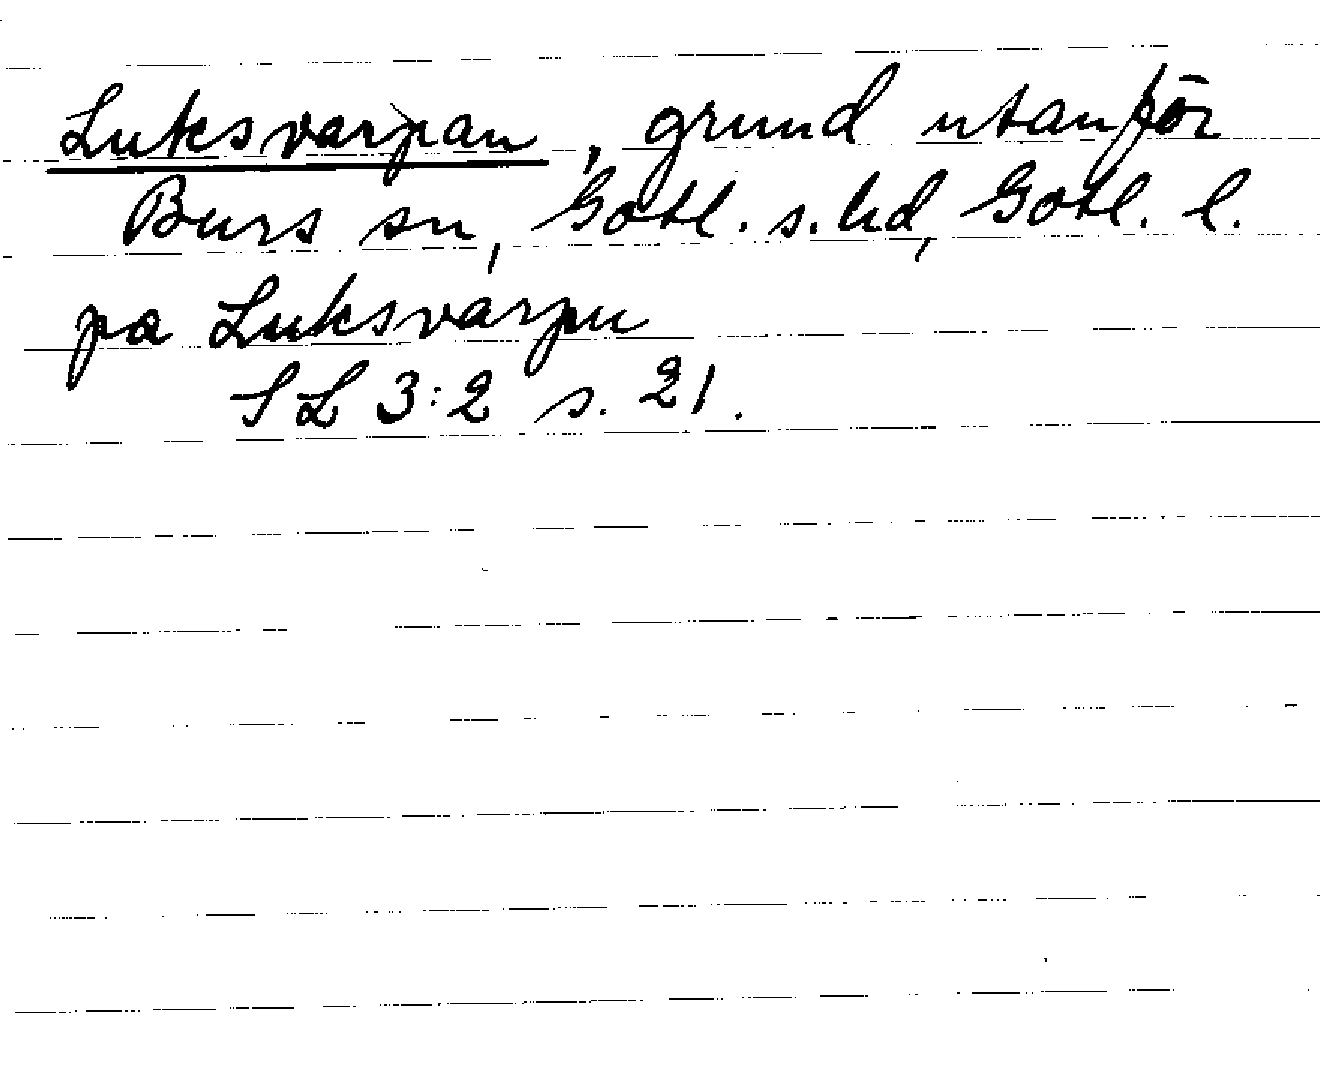 Luksvarpan, grund utanför
Burs sn, Gotl. s. hd, Gotl. l.
pa Luksvarpu
SL 3:2 s. 21.